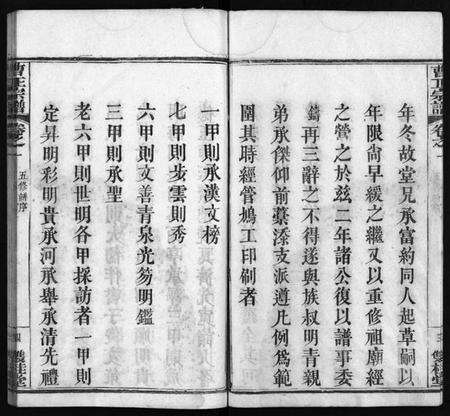 曹氏宗譜
卷之一
年冬故堂兄承富約同人起草嗣以
年限尚早緩之繼又以重修祖廟經
之營之於茲二年諸公復以譜事委
鑄再三辭之不得遂與族叔明青親
弟承傑仰前摹添支派遵凡例為範
圍其時經管鳩工印刷者
一甲則承漢文榜
七甲則步雲則秀
六甲則文善青泉光笏明鑑
三甲則承聖
老六甲則世明各甲採訪者一甲則
定昇明彩明貴承河承舉承清先禮
曹氏宗譜
卷之一
五修譜序
雙桂堂